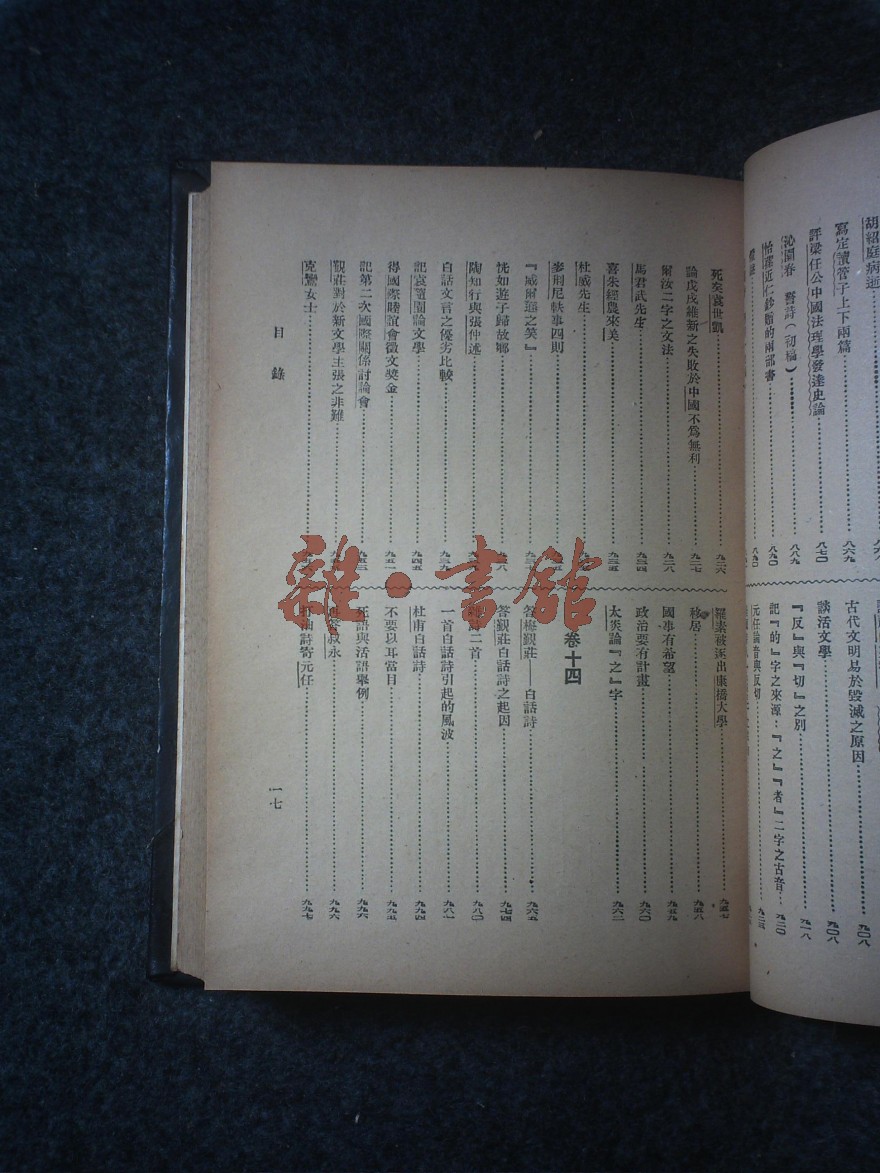 胡紹庭病逝
寫定讀管子上下兩篇 八六九
評梁任公中國法理學發達史論 八七〇
沁園春 誓詩(初稿) 八八九
怡蓀近仁鈔贈的兩部書 八九〇
八九〇
古代文明易於毀滅之原因 九〇八
談活文學 九〇八
『反』與『切』之別 九一八
記『的』字之來源:『之』『者』二字之古音 九二〇
元任論音與反切
死矣袁世凱 九二六
論戊戌維新之失敗於中國不爲無利 九二七
爾汝二字之文法 九二八
馬君武先生 九三四
喜朱經農來美 九三五
杜威先生
麥荊尼軼事四則
『威爾遜之笑』
恍如遊子歸故鄉
陶知行與張仲述
白話文言之優劣比較
記袁隨園論文學 九四五
得國際睦誼會徵文獎金
記第二次國際關係討論會
覲莊對於新文學主張之非難
克鸞女士
羅素被逐出康橋大學 九五七
移居 九五八
國事有希望 九五九
政治要有計畫 九六〇
太炎論『之』字 九六二
卷十四
答梅覲莊——白話詩 九六五
答覲莊白話詩之起因 九七四
二首 九八〇
一首白話詩引起的風波 九八一
杜甫白話詩 九九四
不要以耳當目 九九五
死語與活語舉例 九九六
答叔永 九九六
打油詩寄元任 九九七
目錄
一七
雜·書館